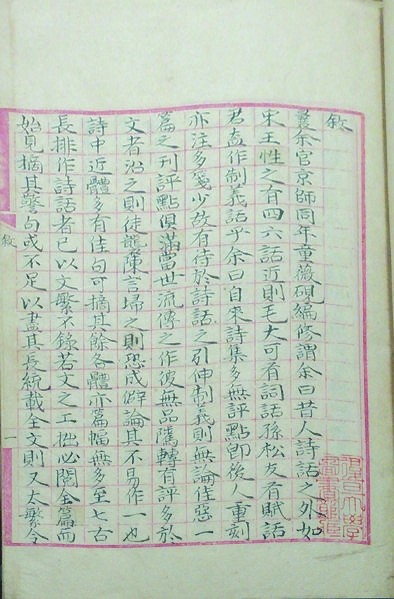 敘
曩余官京師同年董薇硯編修謂余曰昔人詩話之外如
宋王性之有四六話近則毛大可有詞話孫松友有賦話
君盍作制義話乎余曰自來詩集多無評點即後人重刻
亦注多箋少故有待於詩話之引伸制義則無論佳惡一
篇之刊評點俱滿當世流傳之作彼無品隲轉有評多於
文者沿之則徒襲陳言埽之則恐成僻論其不易作一也
詩中近體多有佳句可摘其餘各體亦篇幅無多至七古
長排作詩話者已以文繁不錄若文之工拙必閱全篇而
始見摘其警句或不足以盡其長統載全文則又太繁今
敘
一